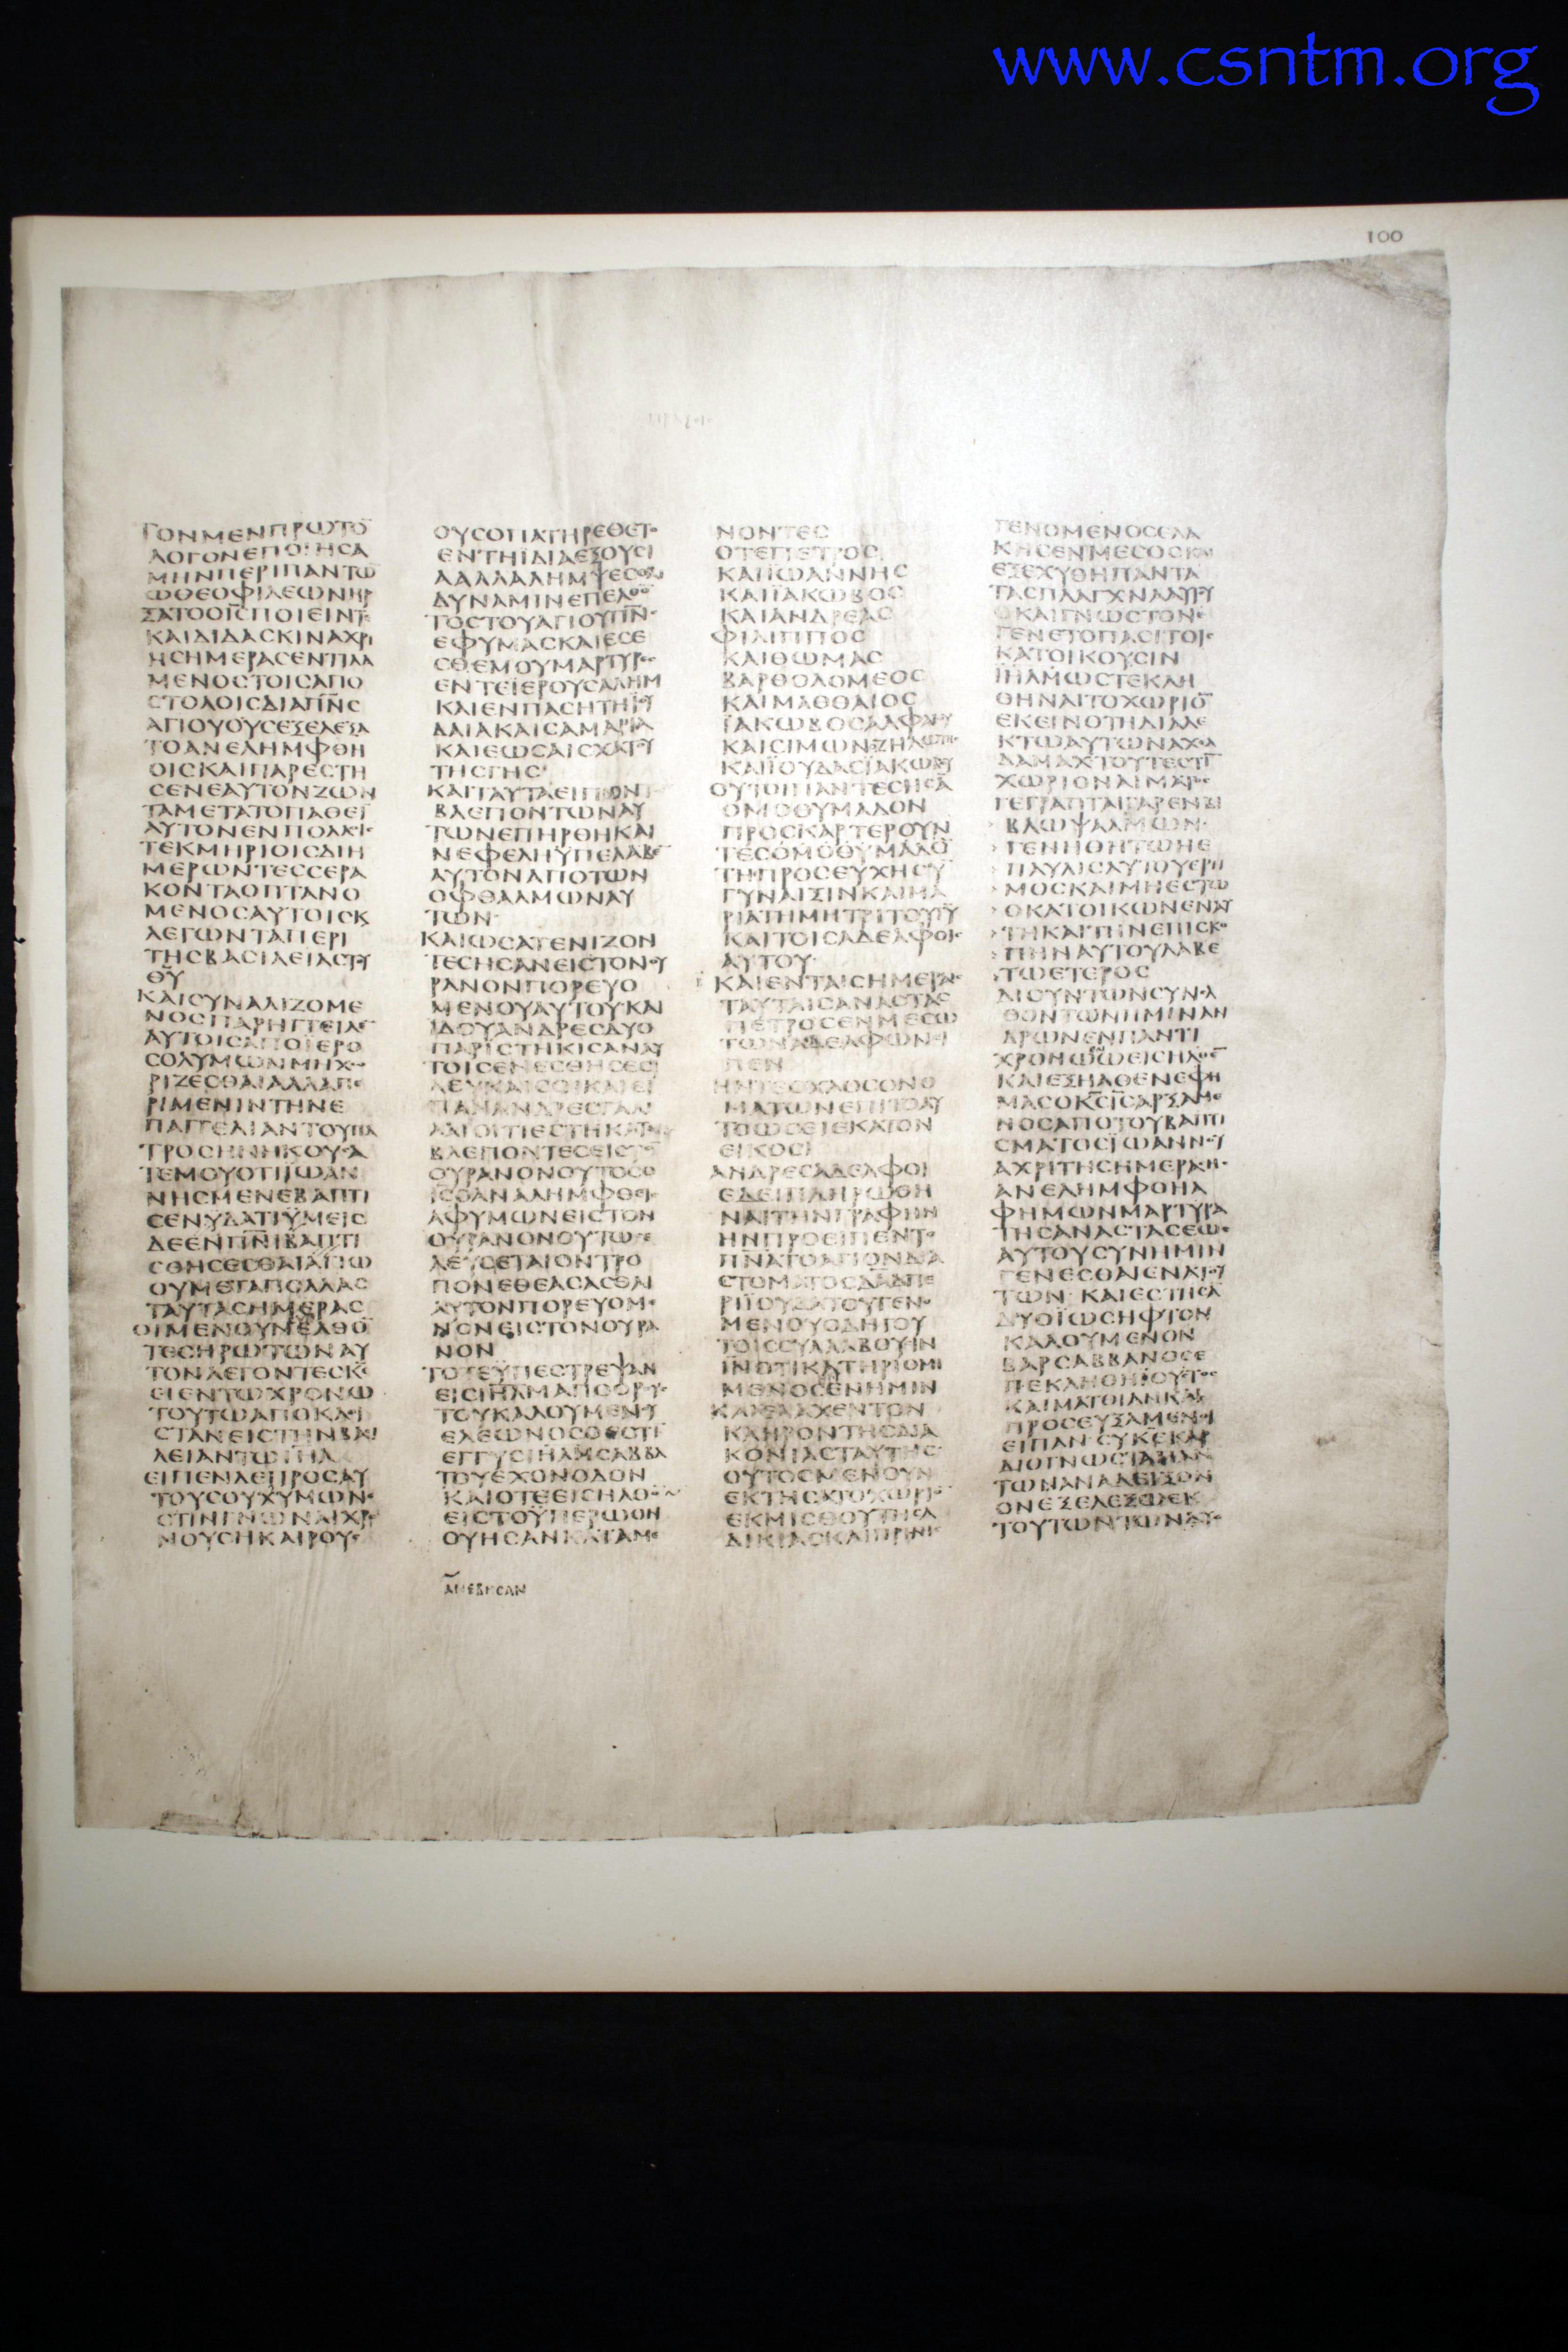 www.csntm.org
100
ΤΟΝΜΕΝΠΡΩΤΟ̅
ΛΟΓΟΝΕΠΟΙΗСΑ
ΜΗΝΠΕΡΙΠΑΝΤΩ̅
ΩΘΕΟΦΙΛΕΩΝΗΡ
ΞΑΤΟΟΙ̅С̅ΠΟΙΕΙΝΤΕ
ΚΑΙΔΙΔΑСΚΙΝΑΧΡΙ
ΗСΗΜΕΡΑСΕΝΤΙΛΑ
ΜΕΝΟСΤΟΙСΑΠΟ
СΤΟΛΟΙСΔΙΑΠ̅Ν̅С̅
ΑΓΙΟΥΟΥСΕΞΕΛΕΞΑ
ΤΟΑΝΕΛΗΜΦΘΗ
ΟΙСΚΑΙΠΑΡΕСΤΗ
СΕΝΕΑΥΤΟΝΖΩΝ
ΤΑΜΕΤΑΤΟΠΑΘΕΙ̅
ΑΥΤΟΝΕΝΠΟΛΛΟΙС
ΤΕΚΜΗΡΙΟΙСΔΙΗ
ΜΕΡΩΝΤΕССΕΡΑ
ΚΟΝΤΑΟΠΤΑΝΟ
ΜΕΝΟСΑΥΤΟΙСΚ
ΛΕΓΩΝΤΑΠΕΡΙ
ΤΗСΒΑСΙΛΕΙΑСΤΟΥ
Θ̅Υ̅
ΚΑΙСΥΝΑΛΙΖΟΜΕ
ΝΟСΠΑΡΗΓΓΕΙΛΕ̅
ΑΥΤΟΙСΑΠΟΪΕΡΟ
СΟΛΥΜΩΝΜΗΧΩ
ΡΙΖΕСΘΑΙΑΛΛΑΠΕ
ΡΙΜΕΝΙΝΤΗΝΕ
ΠΑΓΓΕΛΙΑΝΤΟΥΠΑ
ΤΡΟСΗΝΗΚΟΥСΑ
ΤΕΜΟΥΟΤΙΪΩΑΝ
ΝΗСΜΕΝΕΒΑΠΤΙ
СΕΝΫΔΑΤΙΫΜΕΙС
ΔΕΕΝΠ̅Ν̅Ι̅ΒΑΠΤΙ
СΘΗСΕСΘΑΙΑΓΙΩ
ΟΥΜΕΤΑΠΟΛΛΑС
ΤΑΥΤΑСΗΜΕΡΑС
ΟΙΜΕΝΟΥΝΕΛΘΟ̅
ΤΕСΗΡΩΤΩΝΑΥ
ΤΟΝΛΕΓΟΝΤΕСΚ̅Ε̅
ΕΙΕΝΤΩΧΡΟΝΩ
ΤΟΥΤΩΑΠΟΚΑΘΙ
СΤΑΝΕΙСΤΗΝΒΑСΙ
ΛΕΙΑΝΤΩΙ̅Η̅Λ̅
ΕΙΠΕΝΔΕΠΡΟСΑΥ
ΤΟΥСΟΥΧΥΜΩΝΕ
СΤΙΝΓΝΩΝΑΙΧΡΟ
ΝΟΥСΗΚΑΙΡΟΥС
ΟΥСΟΠΑΤΗΡΕΘΕΤΟ
ΕΝΤΗΪΔΙΑΕΞΟΥСΙ
ΑΑΛΛΑΛΗΜΨΕСΘΑΙ
ΔΥΝΑΜΙΝΕΠΕΛΘΟ̅
ΤΟСΤΟΥΑΓΙΟΥΠ̅Ν̅С̅
ΕΦΥΜΑСΚΑΙΕСΕ
СΘΕΜΟΥΜΑΡΤΥΡΕС
ΕΝΤΕΪΕΡΟΥСΑΛΗΜ
ΚΑΙΕΝΠΑСΗΤΗΪΟΥ
ΔΑΙΑΚΑΙСΑΜΑΡΙΑ
ΚΑΙΕΩСΑΙСΧΑΤΟΥ
ΤΗСΓΗС
ΚΑΙΤΑΥΤΑΕΙΠΩΝ
ΒΛΕΠΟΝΤΩΝΑΥ
ΤΩΝΕΠΗΡΘΗΚΑΙ
ΝΕΦΕΛΗΫΠΕΛΑΒΕ̅
ΑΥΤΟΝΑΠΟΤΩΝ
ΟΦΘΑΛΜΩΝΑΥ
ΤΩΝ
ΚΑΙΩСΑΤΕΝΙΖΟΝ
ΤΕСΗСΑΝΕΙСΤΟΝΟΥ
ΡΑΝΟΝΠΟΡΕΥΟ
ΜΕΝΟΥΑΥΤΟΥΚΑΙ
ΪΔΟΥΑΝΔΡΕСΔΥΟ
ΠΑΡΙСΤΗΚΙСΑΝΑΥ
ΤΟΙСΕΝΕСΘΗСΕСΙ
ΛΕΥΚΑΙСΟΙΚΑΙΕΙ
ΠΑΝΑΝΔΡΕСΓΑΛΙ
ΛΑΙΟΙΤΙΕСΤΗΚΑΤΕ
ΒΛΕΠΟΝΤΕСΕΙСΤΟ̅
ΟΥΡΑΝΟΝΟΥΤΟСΟ
Ι̅С̅ΟΑΝΑΛΗΜΦΘΕΙС
ΑΦΥΜΩΝΕΙСΤΟΝ
ΟΥΡΑΝΟΝΟΥΤΩС
ΛΕΥСΕΤΑΙΟΝΤΡΟ
ΠΟΝΕΘΕΑСΑСΘΑΙ
ΑΥΤΟΝΠΟΡΕΥΟΜΕ
ΝΟΝΕΙСΤΟΝΟΥΡΑ
ΝΟΝ
ΤΟΤΕΫΠΕСΤΡΕΨΑΝ
ΕΙСΙ̅Η̅Λ̅Μ̅ΑΠΟΟΡΟΥС
ΤΟΥΚΑΛΟΥΜΕΝΟΥ
ΕΛΕΩΝΟСΟΕСΤΙ̅
ΕΓΓΥСΙ̅Η̅Λ̅Μ̅СΑΒΒΑ
ΤΟΥΕΧΟΝΟΔΟΝ
ΚΑΙΟΤΕΕΙСΗΛΘΟ̅
ΕΙСΤΟΫΠΕΡΩΟΝ
ΟΥΗСΑΝΚΑΤΑΜΕ
ΑΝΕΒΗСΑΝ
ΝΟΝΤΕС
ΟΤΕΠΕΤΡΟС
ΚΑΙΪΩΑΝΝΗС
ΚΑΙΪΑΚΩΒΟС
ΚΑΙΑΝΔΡΕΑС
ΦΙΛΙΠΠΟС
ΚΑΙΘΩΜΑС
ΒΑΡΘΟΛΟΜΕΟС
ΚΑΙΜΑΘΘΑΙΟС
ΪΑΚΩΒΟСΑΛΦΑΙΟΥ
ΚΑΙСΙΜΩΝΖΗΛΩΤΗС
ΚΑΙΪΟΥΔΑСΪΑΚΩΒΟΥ
ΟΥΤΟΙΠΑΝΤΕСΗСΑ̅
ΟΜΟΘΥΜΑΔΟΝ
ΠΡΟСΚΑΡΤΕΡΟΥΝ
ΤΕСΟΜΟΘΥΜΑΔΟ̅
ΤΗΠΡΟСΕΥΧΗСΥ̅
ΓΥΝΑΙΞΙΝΚΑΙΜΑ
ΡΙΑΤΗΜΗΤΡΙΤΟΥΙ̅Υ̅
ΚΑΙΤΟΙСΑΔΕΛΦΟΙС
ΑΥΤΟΥ
ΚΑΙΕΝΤΑΙСΗΜΕΡΑΙС
ΤΑΥΤΑΙСΑΝΑСΤΑС
ΠΕΤΡΟСΕΝΜΕСΩ
ΤΩΝΑΔΕΛΦΩΝΕΙ
ΠΕΝ
ΗΝΤΕΟΧΛΟСΟΝΟ
ΜΑΤΩΝΕΠΙΤΟΑΥ
ΤΟΩСΕΙΕΚΑΤΟΝ
ΕΙΚΟСΙ
ΑΝΔΡΕСΑΔΕΛΦΟΙ
ΕΔΕΙΠΛΗΡΩΘΗ
ΝΑΙΤΗΝΓΡΑΦΗΝ
ΗΝΠΡΟΕΙΠΕΝΤΟ
Π̅Ν̅Α̅ΤΟΑΓΙΟΝΔΙΑ
СΤΟΜΑΤΟСΔ̅Α̅Δ̅ΠΕ
ΡΙΪΟΥΔΑΤΟΥΓΕΝΟ
ΜΕΝΟΥΟΔΗΓΟΥ
ΤΟΙССΥΛΛΑΒΟΥСΙΝ
Ι̅Ν̅ΟΤΙΚΑΤΗΡΙΘΜΗ
ΜΕΝΟСΕΝΗΜΙΝ
ΚΑΙΕΛΑΧΕΝΤΟΝ
ΚΛΗΡΟΝΤΗСΔΙΑ
ΚΟΝΙΑСΤΑΥΤΗС
ΟΥΤΟСΜΕΝΟΥΝ
ΕΚΤΗСΑΤΟΧΩΡΙΟ
ΕΚΜΙСΘΟΥΤΗСΑ
ΔΙΚΙΑСΚΑΙΠΡΗΝΗС
ΓΕΝΟΜΕΝΟСΕΛΑ
ΚΗСΕΝΜΕСΟСΚΑΙ
ΕΞΕΧΥΘΗΠΑΝΤΑ
ΤΑСΠΛΑΓΧΝΑΑΥΤΟΥ
ΟΚΑΙΓΝΩСΤΟΝΕ
ΓΕΝΕΤΟΠΑСΙΤΟΙС
ΚΑΤΟΙΚΟΥСΙΝ
Ι̅Η̅Λ̅Μ̅ΩСΤΕΚΛΗ
ΘΗΝΑΙΤΟΧΩΡΙΟ̅
ΕΚΕΙΝΟΤΗΔΙΑΛΕ
ΚΤΩΑΥΤΩΝΑΧΕΛ
ΔΑΜΑΧΤΟΥΤΕСΤΙ̅
ΧΩΡΙΟΝΑΙΜΑΤΟС
ΓΕΓΡΑΠΤΑΙΓΑΡΕΝΒΙ
ΒΛΩΨΑΛΜΩΝ
ΓΕΝΗΘΗΤΩΗΕ
ΠΑΥΛΙСΑΥΤΟΥΕΡΗ
ΜΟСΚΑΙΜΗΕСΤΩ
ΟΚΑΤΟΙΚΩΝΕΝΑΥ
ΤΗΚΑΙΤΗΝΕΠΙСΚΟ
ΠΗΝΑΥΤΟΥΛΑΒΕ
ΤΩΕΤΕΡΟС
ΔΙΟΥΝΤΩΝСΥΝΕΛ
ΘΟΝΤΩΝΗΜΙΝΑΝ
ΔΡΩΝΕΝΠΑΝΤΙ
ΧΡΟΝΩΩΕΙСΗΛΘΕ̅
ΚΑΙΕΞΗΛΘΕΝΕΦΗ
ΜΑСΟΚ̅С̅Ι̅С̅ΑΡΞΑΜΕ
ΝΟСΑΠΟΤΟΥΒΑΠΤΙ
СΜΑΤΟСΪΩΑΝΝΟΥ
ΑΧΡΙΤΗСΗΜΕΡΑСΗС
ΑΝΕΛΗΜΦΘΗΑ
ΦΗΜΩΝΜΑΡΤΥΡΑ
ΤΗСΑΝΑСΤΑСΕΩС
ΑΥΤΟΥСΥΝΗΜΙΝ
ΓΕΝΕСΘΑΙΕΝΑΤΟΥ
ΤΩΝ ΚΑΙΕСΤΗСΑ̅
ΔΥΟΪΩСΗΦΤΟΝ
ΚΑΛΟΥΜΕΝΟΝ
ΒΑΡСΑΒΒΑΝΟСΕ
ΠΕΚΛΗΘΗΪΟΥСΤΟС
ΚΑΙΜΑΘΘΙΑΝΚΑΙ
ΠΡΟСΕΥΞΑΜΕΝΟΙ
ΕΙΠΑΝ СΥΚ̅Ε̅ΚΑΡ
ΔΙΟΓΝΩСΤΑΠΑΝ
ΤΩΝΑΝΑΔΕΙΞΟΝ
ΟΝΕΞΕΛΕΞΩΕΚ
ΤΟΥΤΩΝΤΩΝΔΥΟ